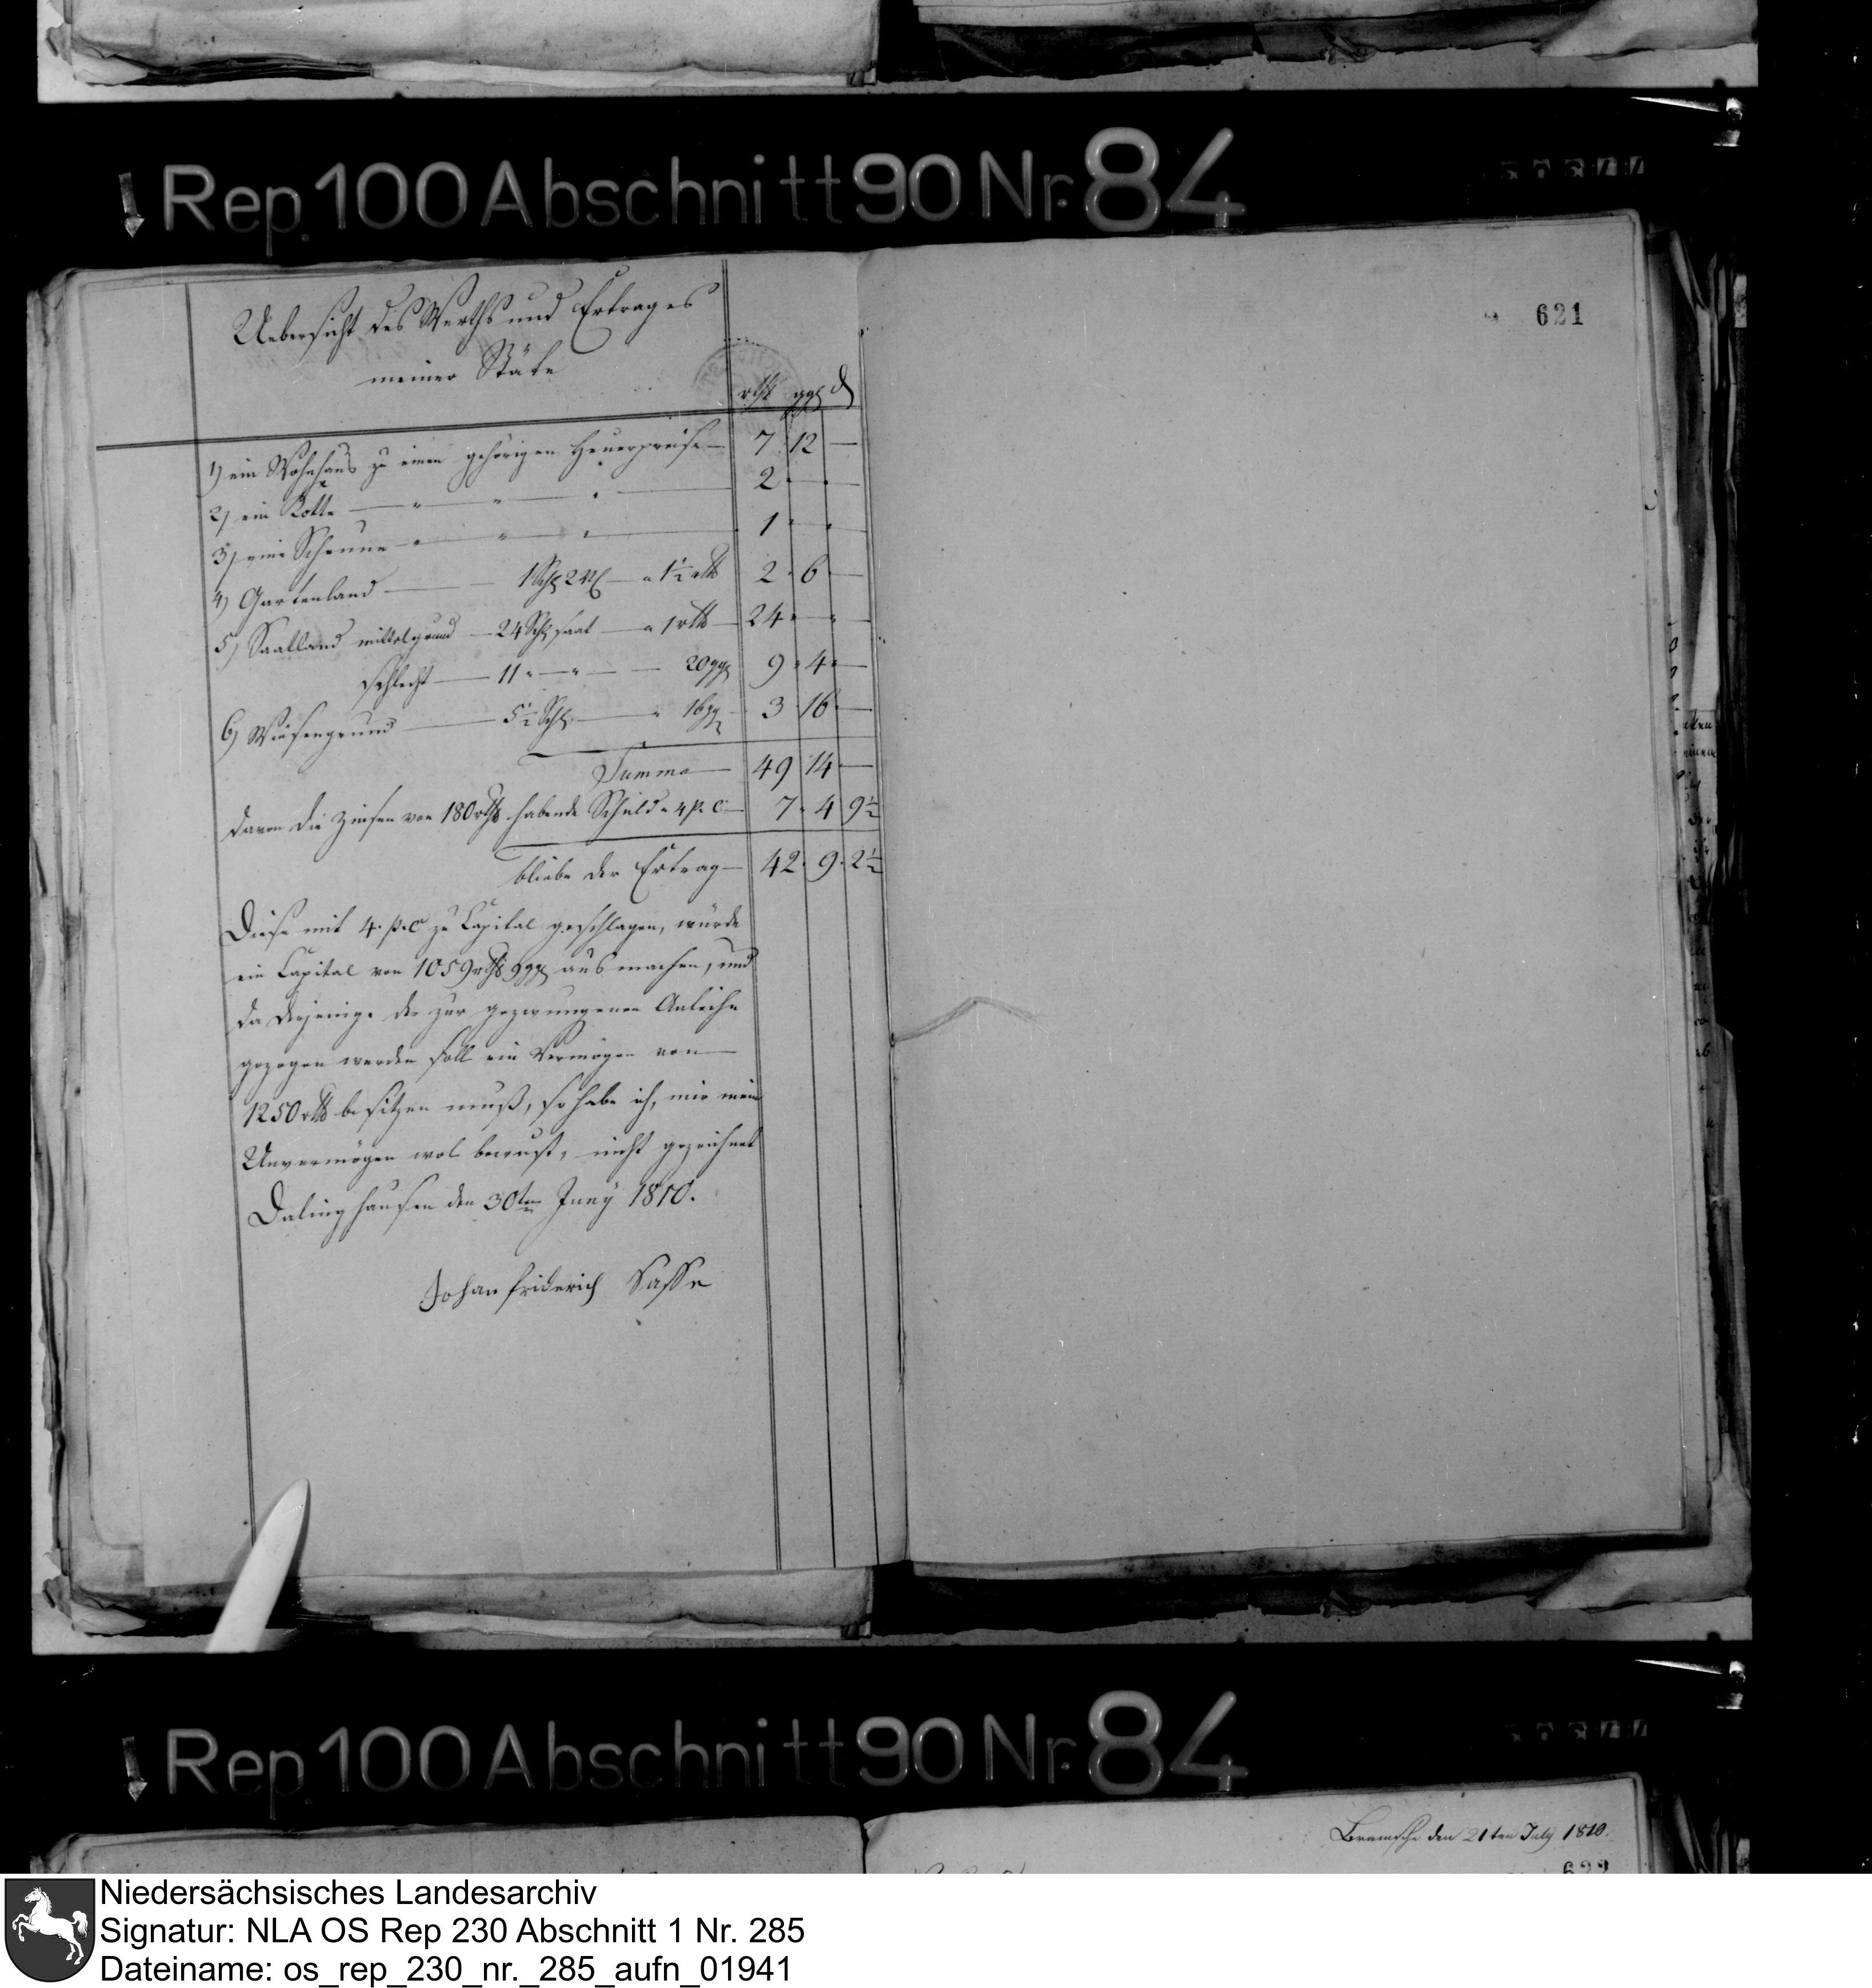 Rep. 100 Abschnitt 90 Nr. 84
Uebersicht des Werths und Ertrages
meiner Stäte
rthl ggl d
1) ein Wohnhaus zu einen gehörigen Heuerpreise — 7 12 —
2) ein Kotte — " — " — " — 2 " —
3) eine Scheune — " — " — " — 1 " "
4) Gartenland — 1 Schl 2 Vl — a 1½ rthl 2 6 —
5) Saatland mittelgrund — 24 Schl saat — a 1 rthl — 24 " " —
schlecht — 11 " — " — 20 ggl 9 4 —
6) Wiesengrund — 5½ Schl — " 16 ggl 3 16 —
Summa — 49 14 —
davon die Zinsen von 180 rthl habende Schuld a 4 p. c. — 7 4 9½
bliebe der Ertrag — 42 9 2½
Diese mit 4. p. c zu Capital geschlagen, würde
ein Capital von 1059 rthl 9 ggl ausmachen, und
da derjenige der zur gezwungenen Anleihe
gezogen werden soll ein Vermögen von —
1250 rthl besitzen muß, so habe ich, mir mein
Unvermögen wol bewust, nicht gezeichnet
Dalinghausen den 30ten Juny 1810.
Johan friderich Sasse
621
Rep. 100 Abschnitt 90 Nr. 84
Bramsche den 21ten July 1810.
622
Niedersächsisches Landesarchiv
Signatur: NLA OS Rep 230 Abschnitt 1 Nr. 285
Dateiname: os_rep_230_nr._285_aufn_01941